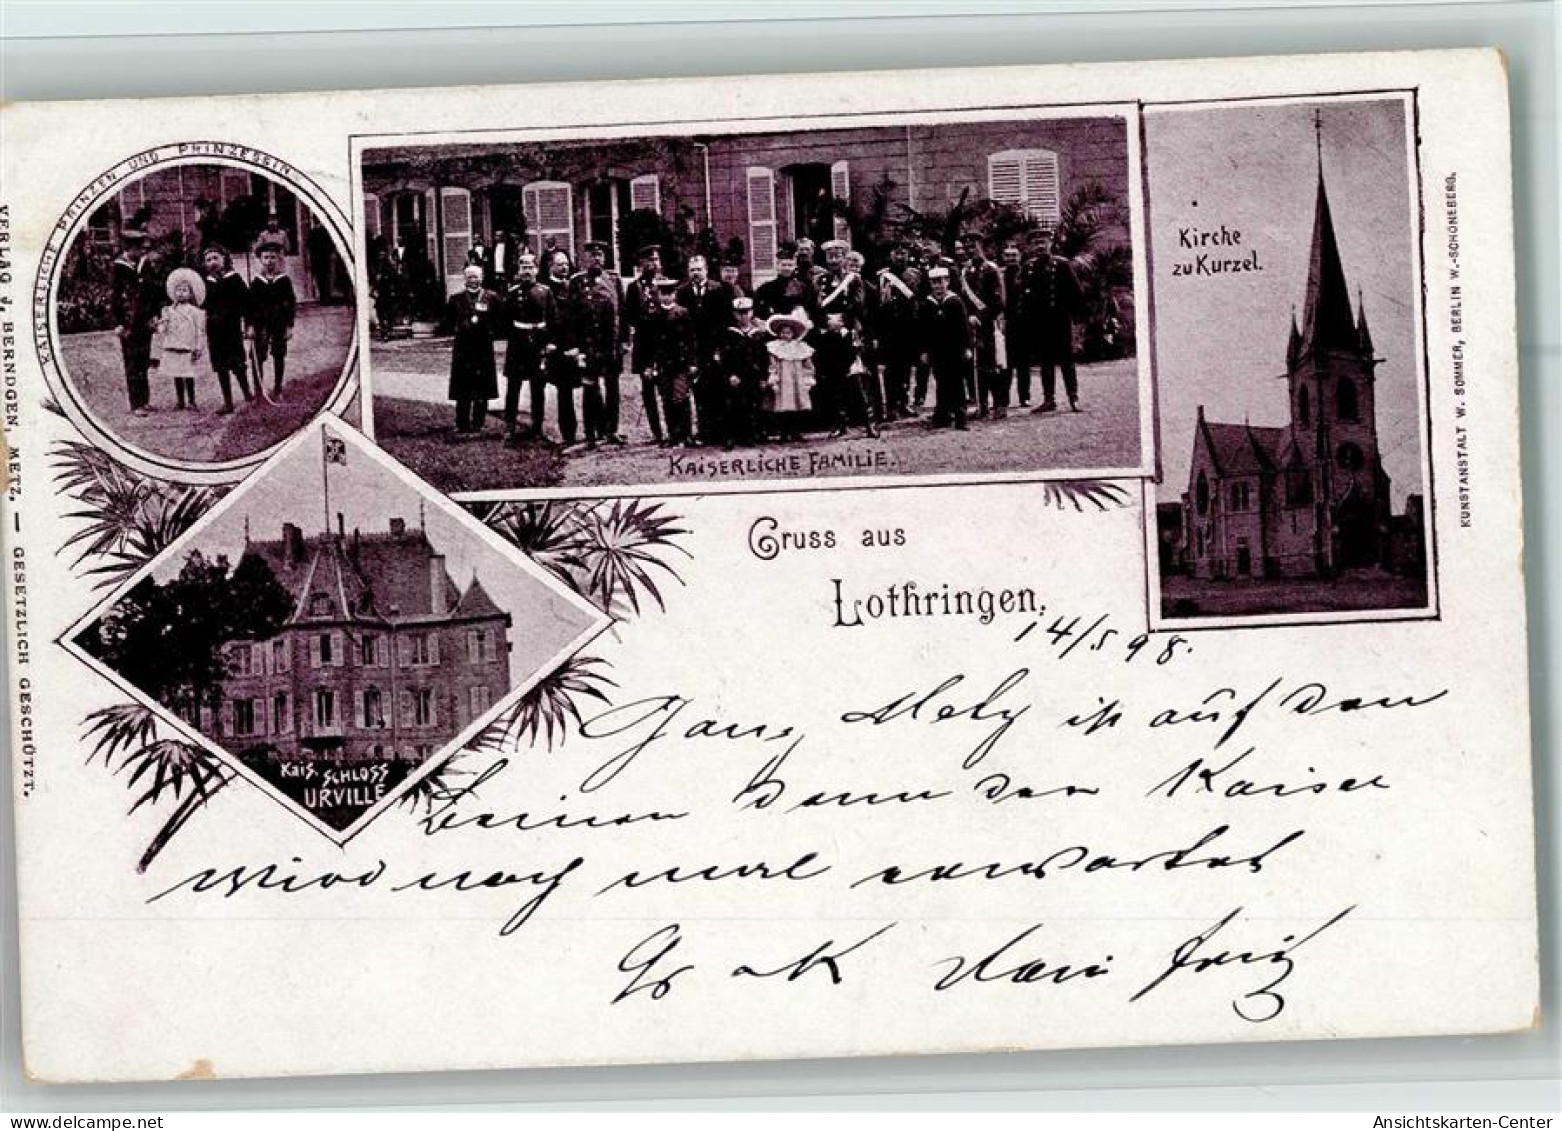 KAISERLICHE PRINZEN UND PRINZESSIN.
KAISERLICHE FAMILIE.
Kirche
zu Kurzel.
Kais. SCHLOSS
URVILLE
Gruss aus
Lothringen.
14/5 98.
Ganz Metz ist auf den
Beinen denn der Kaiser
wird noch mal erwartet
Gr u K Dein Fritz
VERLAG J. BERNDGEN, METZ. — GESETZLICH GESCHÜTZT.
KUNSTANSTALT W. SOMMER, BERLIN W.-SCHÖNEBERG.
delcampe.net
Ansichtskarten-Center